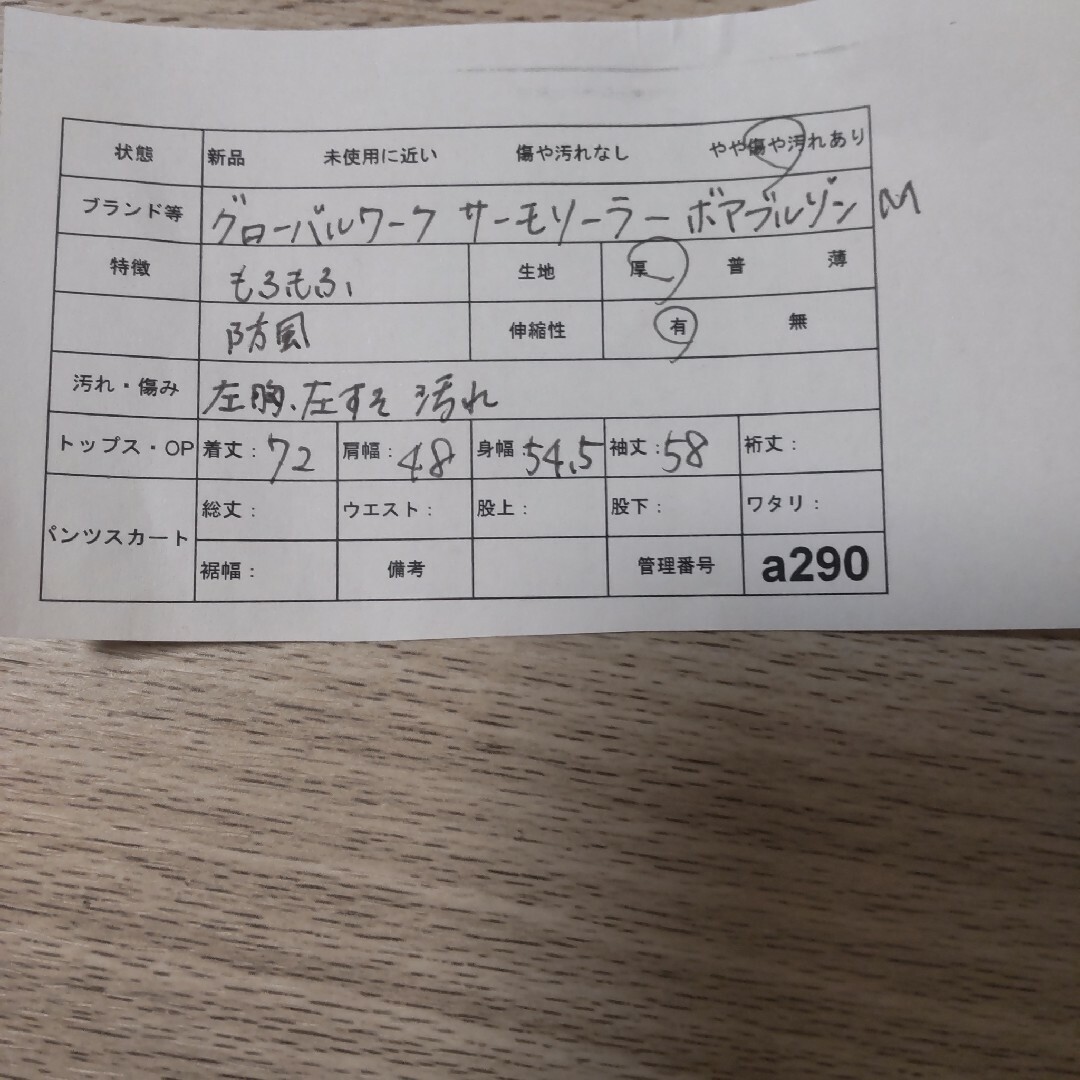 状態 新品 未使用に近い 傷や汚れなし やや傷や汚れあり
ブランド等 グローバルワーク サーモソーラー ボアブルゾン M
特徴 もふもふ 生地 厚 普 薄
防風 伸縮性 有 無
汚れ・傷み 左胸、左すそ 汚れ
トップス・OP 着丈：72 肩幅：48 身幅：54.5 袖丈：58 裄丈：
パンツスカート 総丈： ウエスト： 股上： 股下： ワタリ：
裾幅： 備考 管理番号 a290